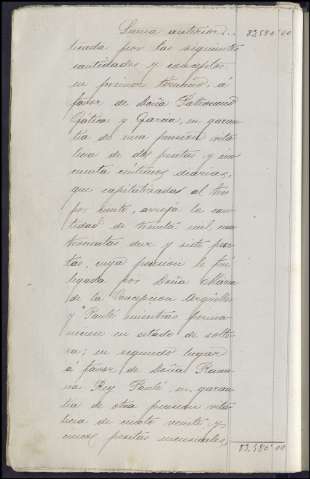 Suma anterior.. 83.580'00
ticada por las siguientes
cantidades y conceptos
en primer término, á
favor de Doña Patrocinio
Gotica y Garcia, en garan-
tia de una pension vita-
licia de dos pesetas y cin-
cuenta céntimos diarios,
que capitalizadas al tres
por ciento, arroja la can-
tidad de treinta mil cua-
trocientas diez y siete pese-
tas, cuya pension le fué
legada por Doña Maria
de la Concepcion Argüelles
y Fanlé mientras perma-
nezca en estado de solte-
ra; en segundo lugar
á favor de Doña
Rey Fanlé, en garan-
tia de otra pension vita-
licia de ciento veinte y
cinco pesetas mensuales,
83.580'00